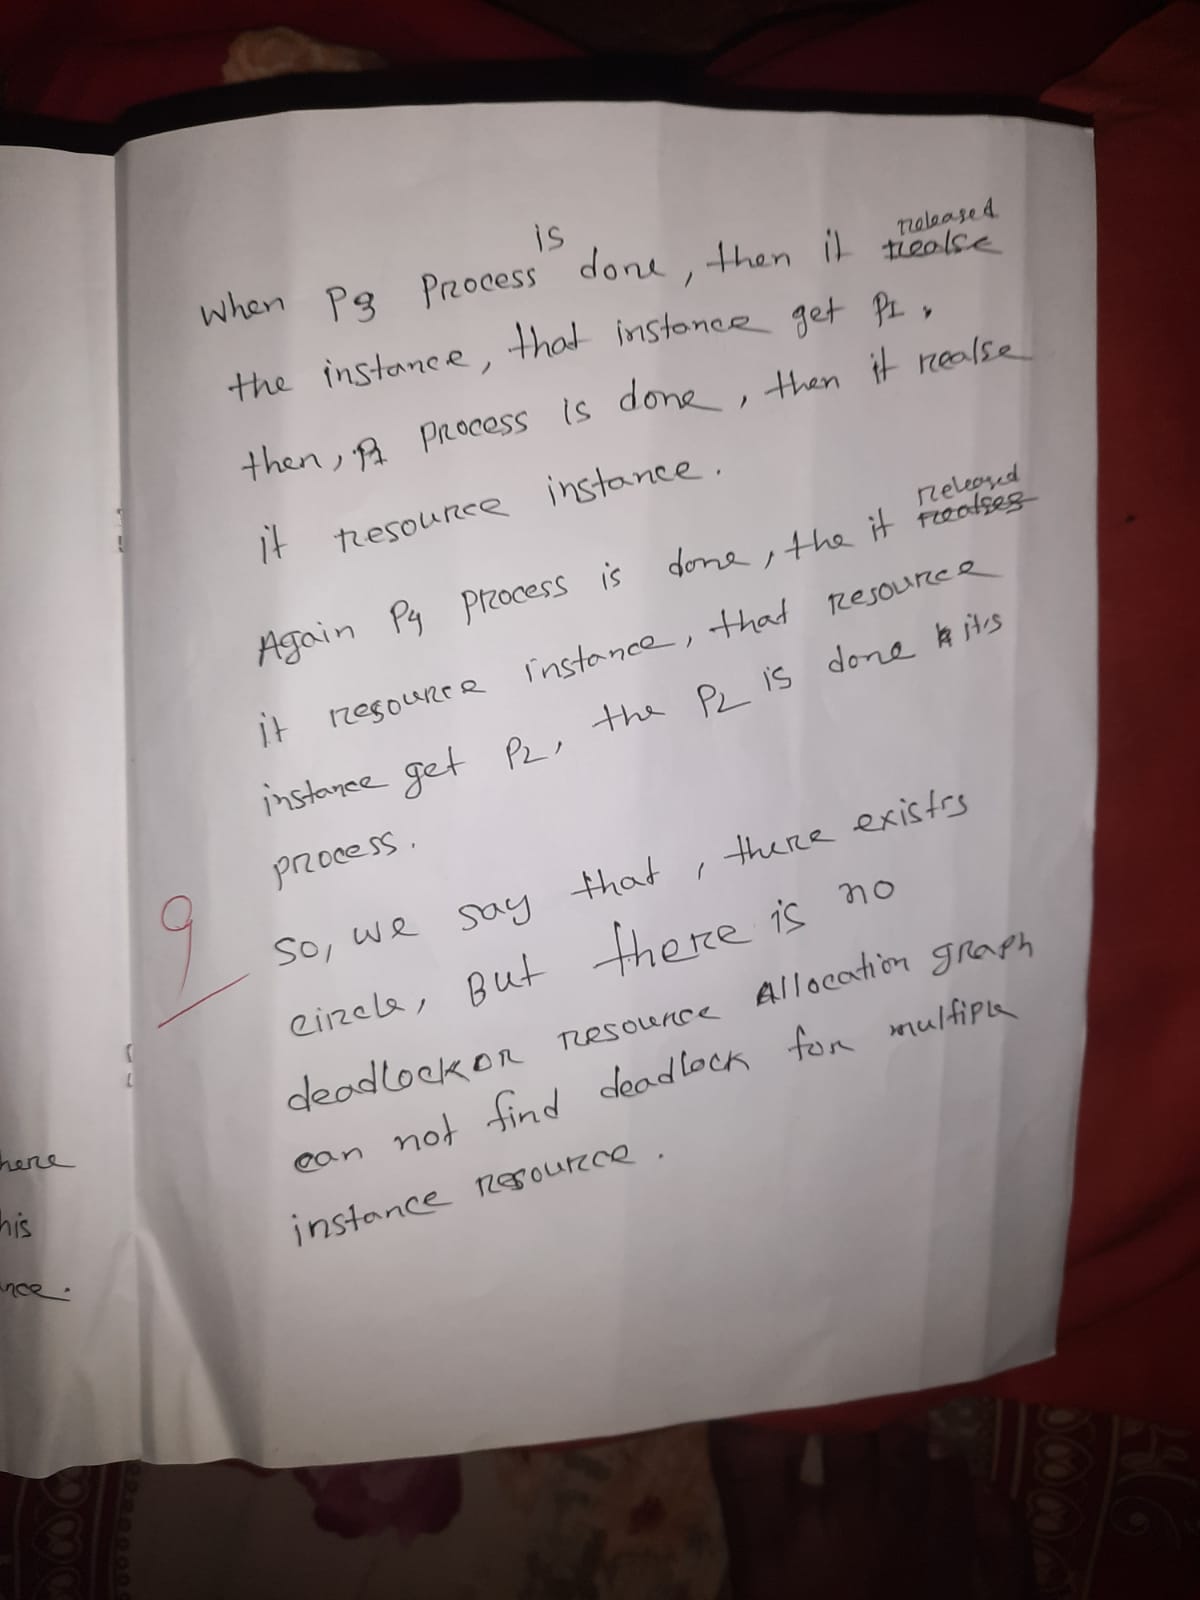 When P3 Process is done, then it released
the instance, that instance get P1,
then, P1 process is done, then it realse
it resource instance.
Again P4 process is done, the it released
it resource instance, that resource
instance get P2, the P2 is done its
process.
So, we say that, there exists
circle, But there is no
deadlock or resource Allocation graph
can not find deadlock for multiple
instance resource.
9
here
his
nce.